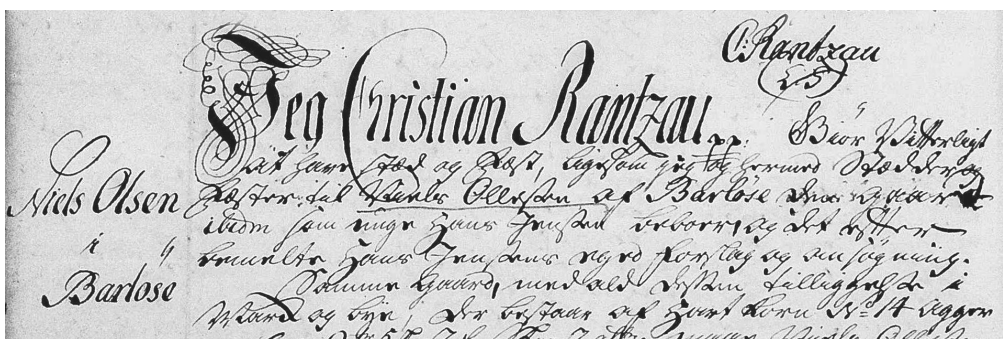 C: Rantzau
L.S.
Jeg Christian Rantzau pp: Giør Vitterligt
At have stæd og Fæst, ligesom jeg og hermed Stædder og
Fæster til Niels Ollesen af Barløse den gaard
ibidm som unge Hans Jensen beboer, og det efter
bemelte Hans Jensens eged forslag og ansøgning.
Samme Gaard, med ald dessen tilliggelse i
Marck og bye, der bestaar af Hartkorn No 14 Agger
Niels Olsen
i
Barløse